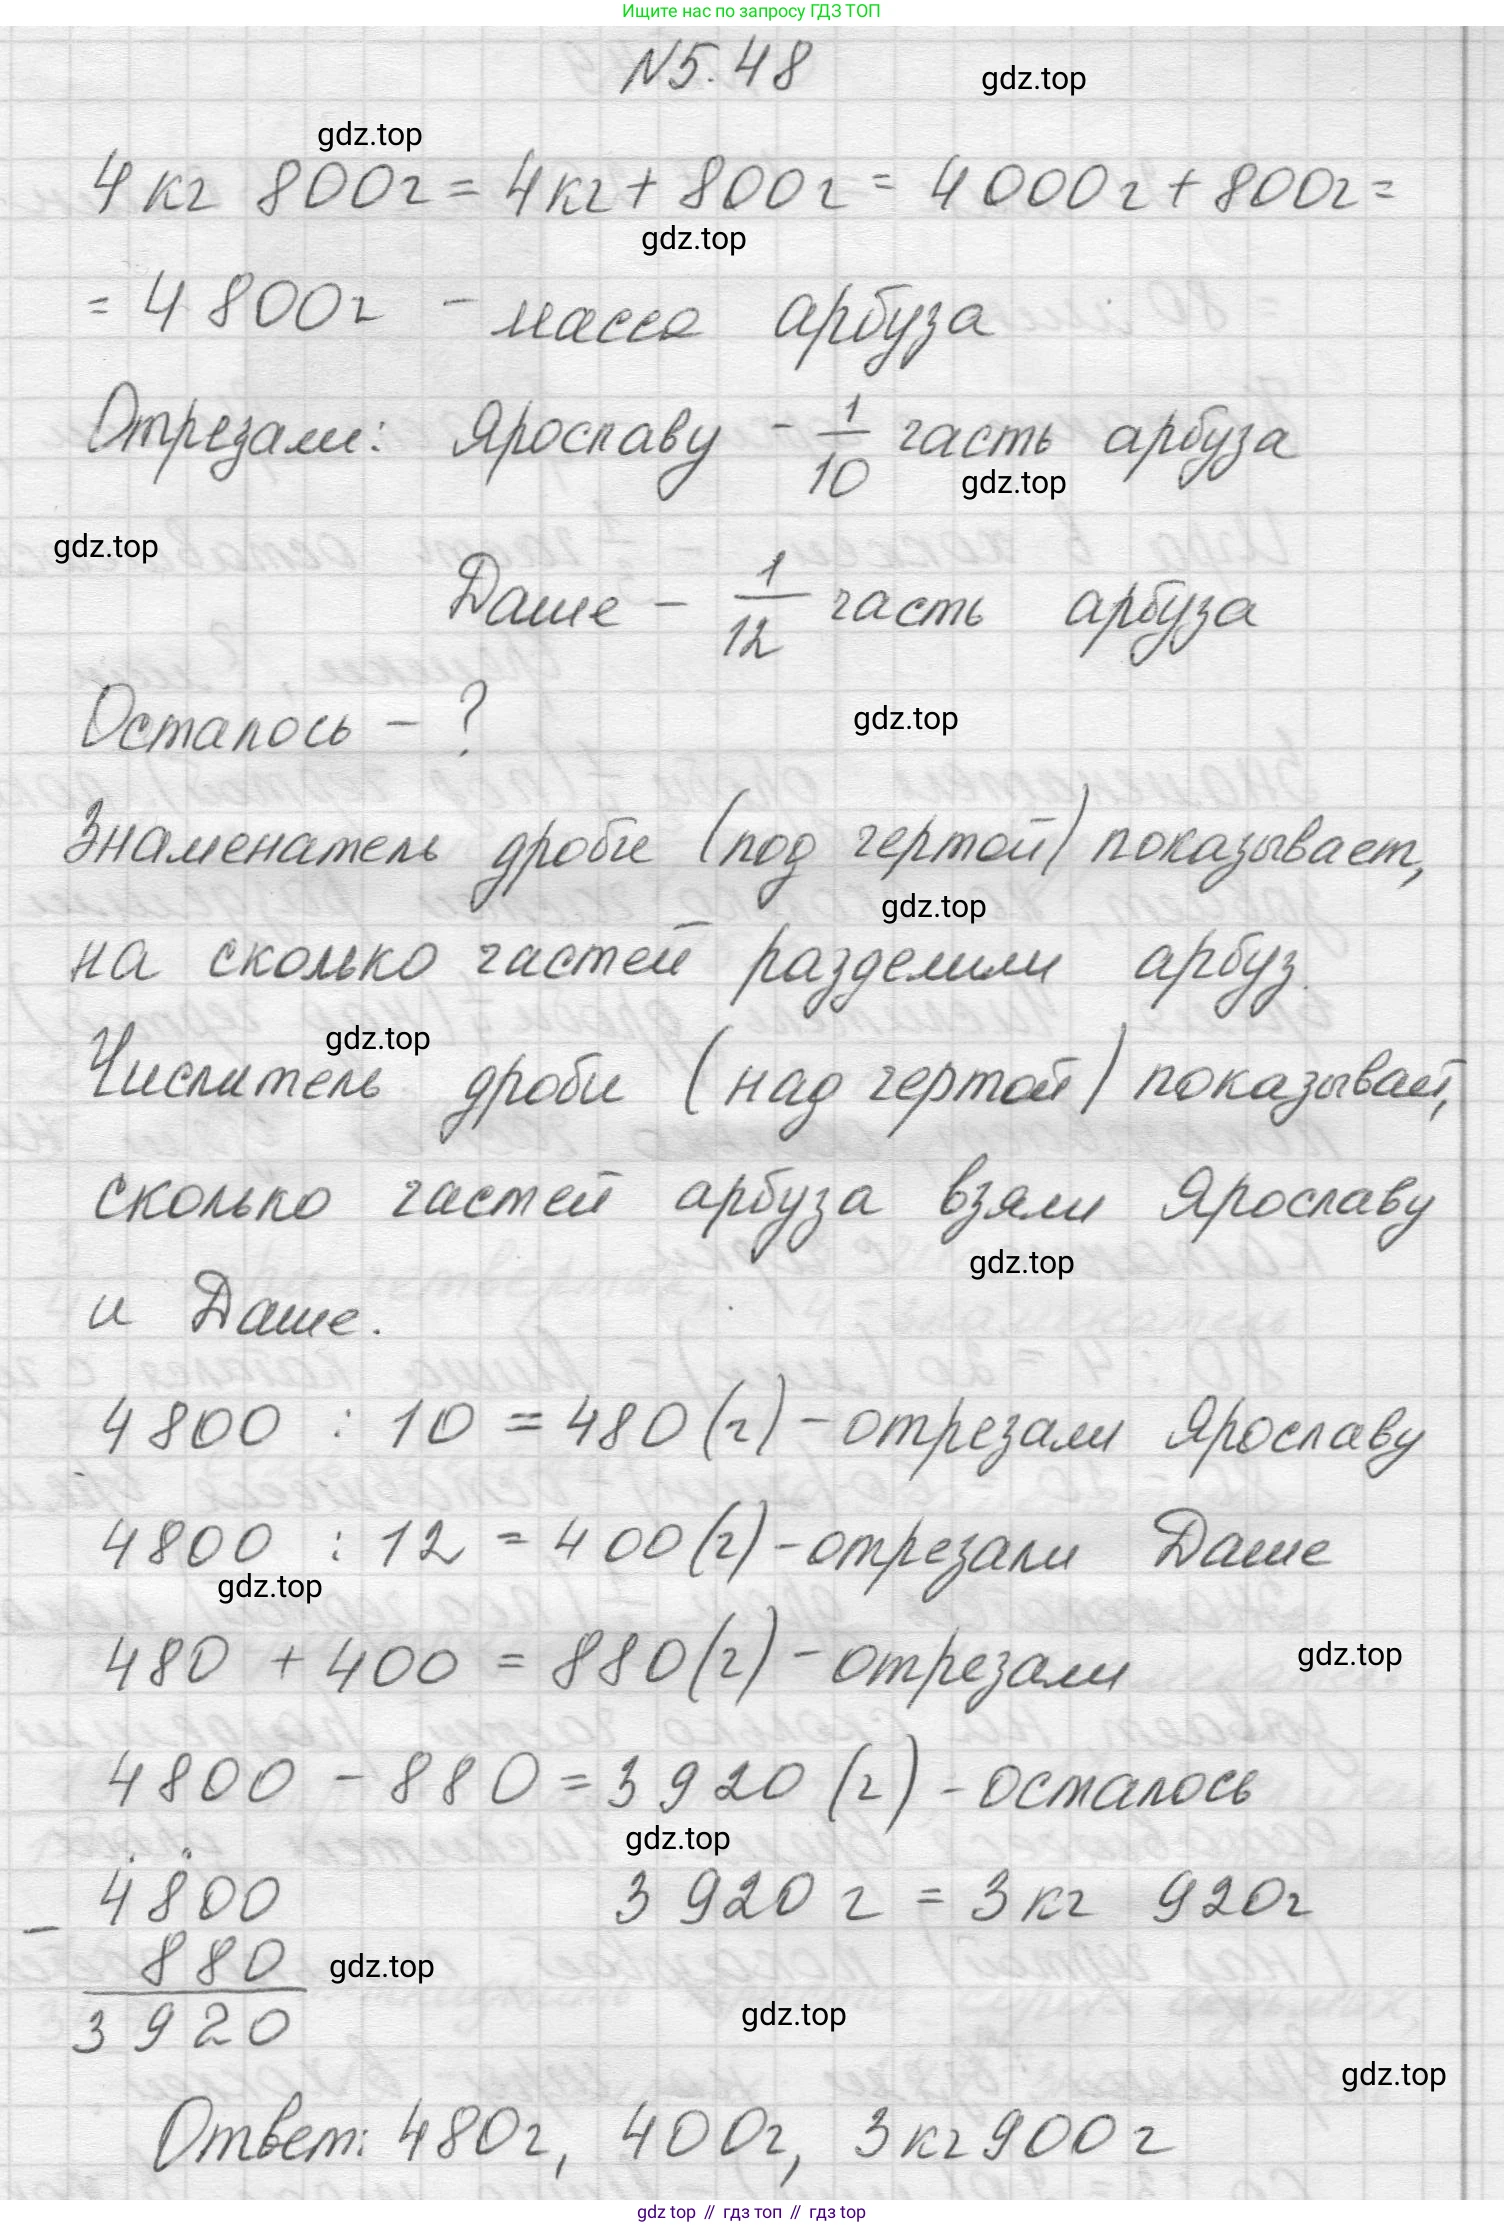 Ищите нас по запросу ГДЗ ТОП
№5.48
gdz.top
gdz.top
4 кг 800г = 4кг + 800г = 4000г + 800г =
gdz.top
= 4800г - масса арбуза
Отрезали: Ярославу - 1/10 часть арбуза
gdz.top
gdz.top
Даше - 1/12 часть арбуза
Осталось - ?
gdz.top
Знаменатель дроби (под чертой) показывает,
gdz.top
на сколько частей разделили арбуз.
gdz.top
Числитель дроби (над чертой) показывает,
сколько частей арбуза взяли Ярославу
gdz.top
и Даше.
4800 : 10 = 480 (г) - отрезали Ярославу
4800 : 12 = 400 (г) - отрезали Даше
gdz.top
480 + 400 = 880 (г) - отрезали
gdz.top
4800 - 880 = 3920 (г) - осталось
gdz.top
4800
3920 г = 3 кг 920г
-
880
gdz.top
3920
gdz.top
gdz.top
Ответ: 480г, 400г, 3кг 900г
gdz.top // гдз топ // гдз top